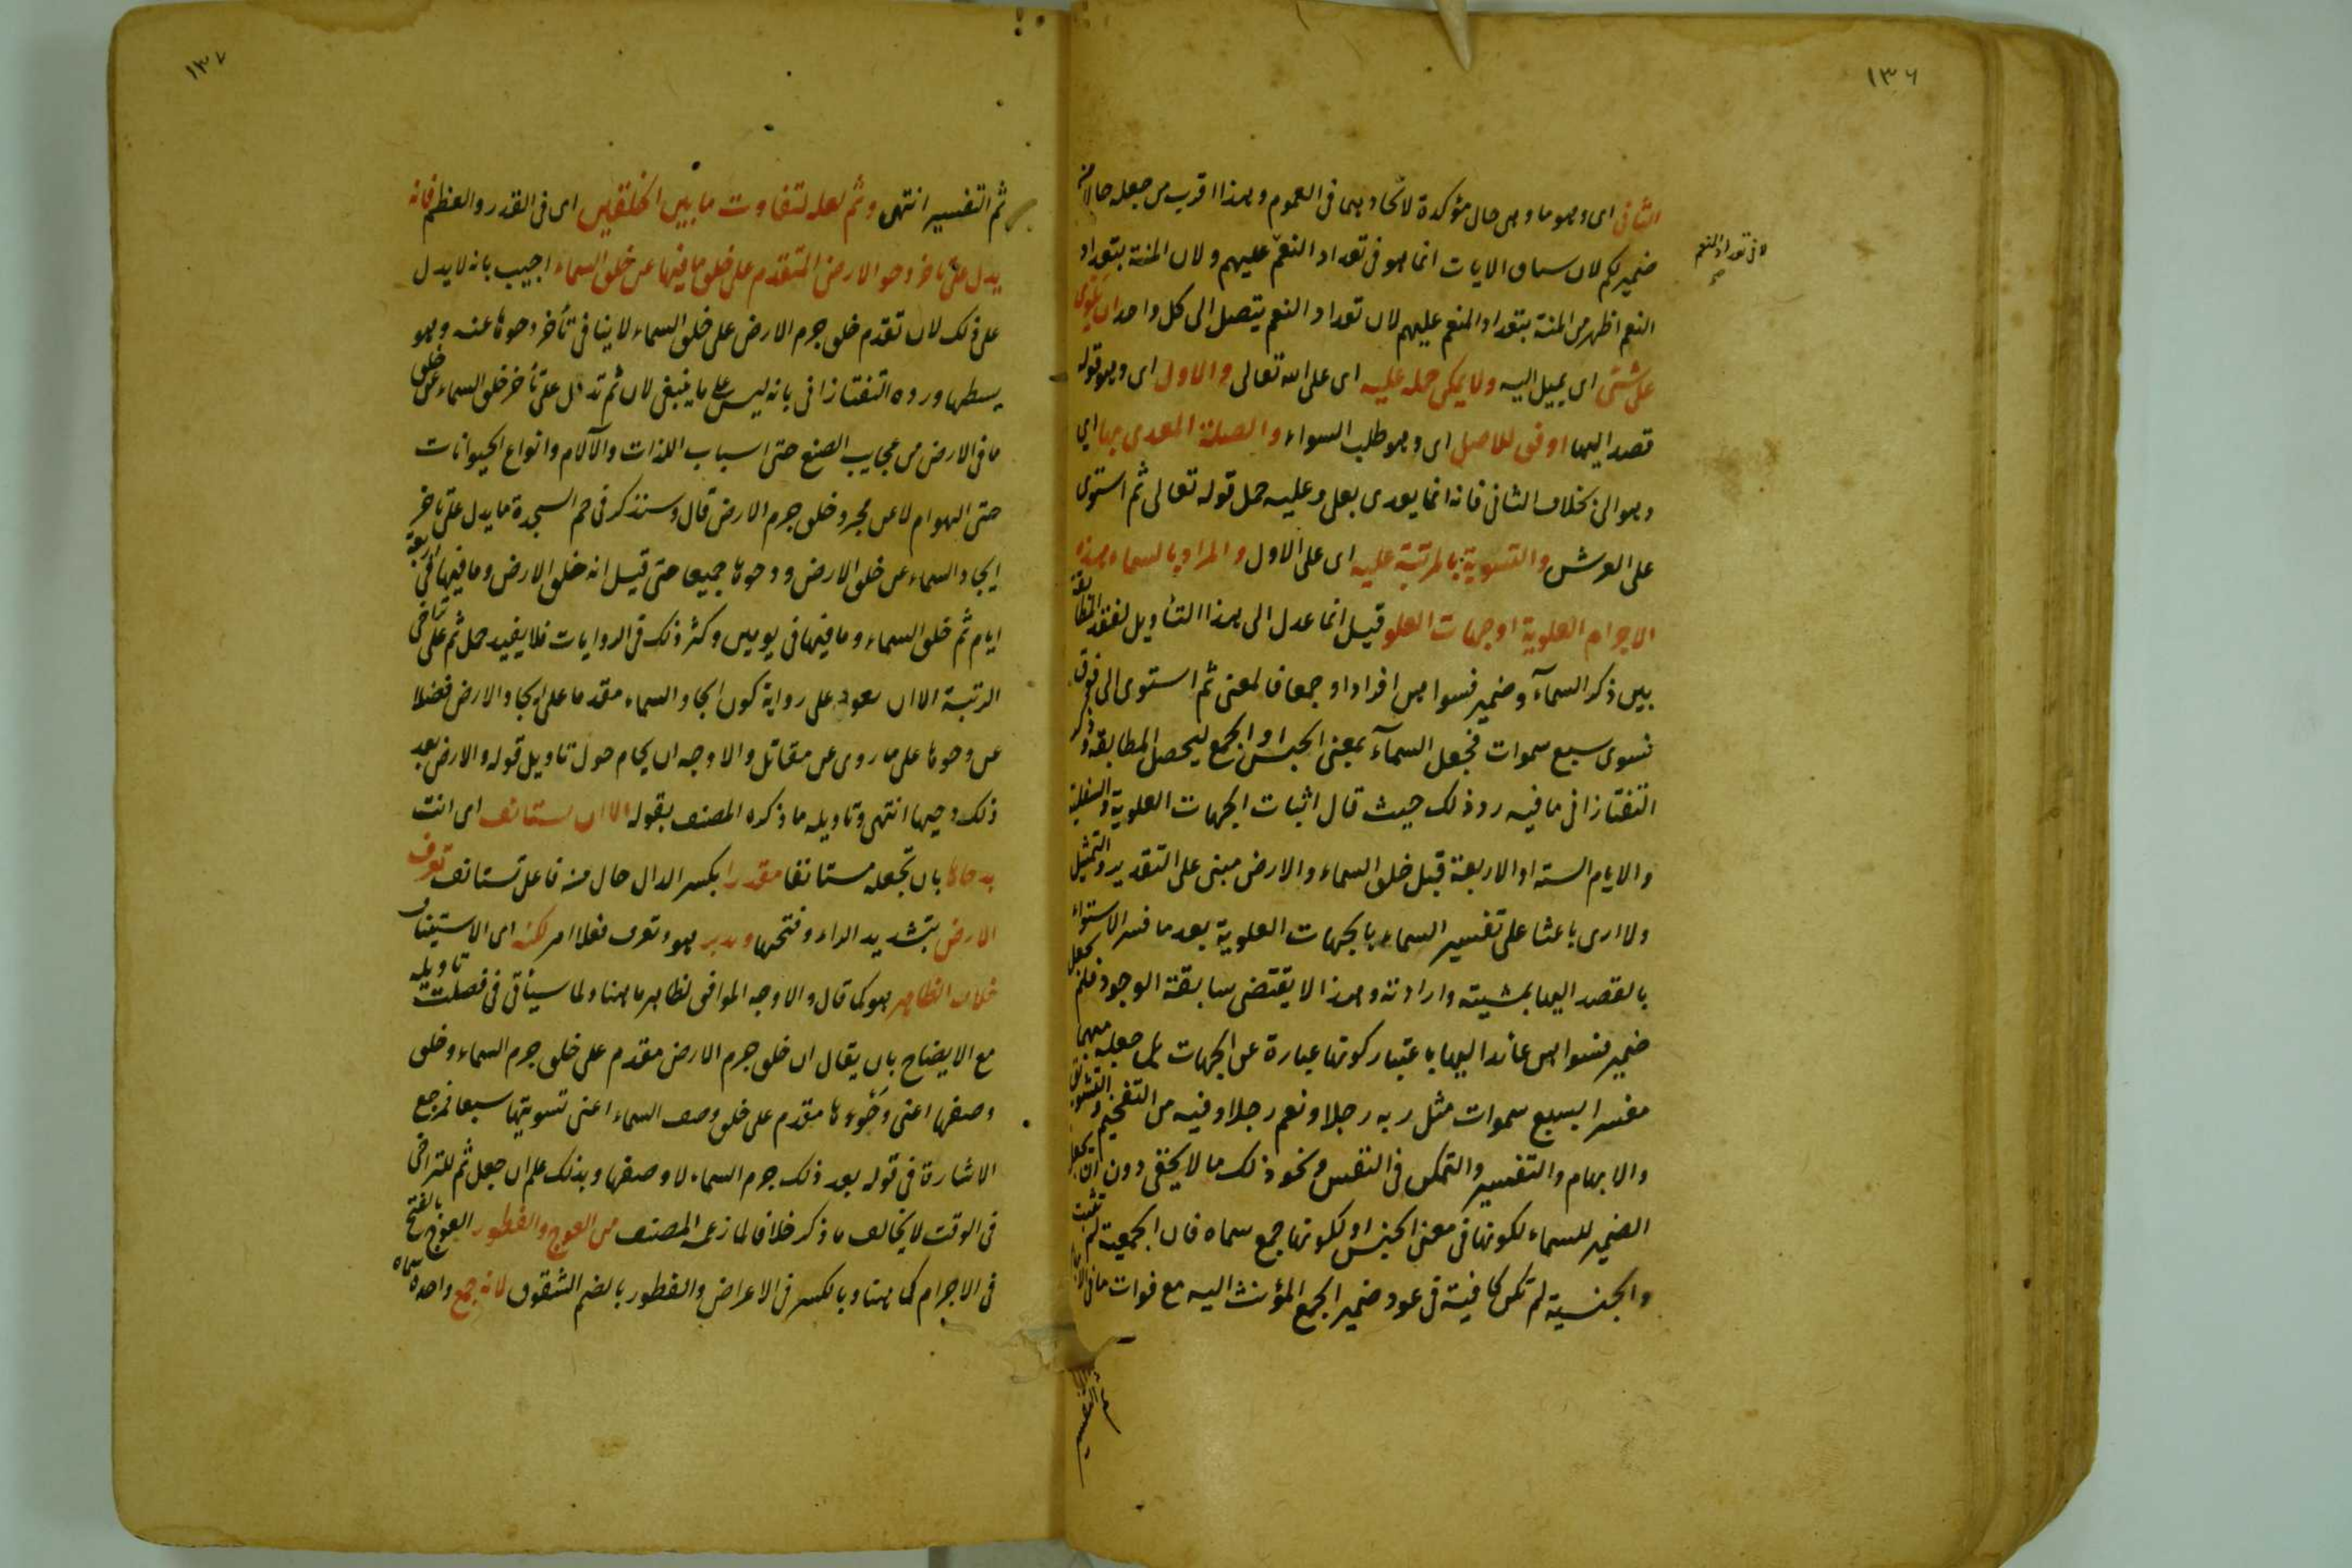 ١٣٦
الثانى اى وهو ما وهى حال مؤكدة لاتحادهما فى العموم وهذا اقرب من جعله حالا من
ضمير لكم لان سياق الايات انما هو فى تعداد النعم عليهم ولان المنة بتعداد
لا فى تعداد المنعم
النعم اظهر من المنة بتعداد المنعم عليهم لان تعداد النعم يتصل الى كل واحد
على شئ اى يميل اليه ولا يمكن حمله عليه اى على الله تعالى والاول اى وهو قوله
قصد اليها اوفق للاصل اى وهو طلب السواء والصلة المعدى بها اى
وهو الى بخلاف الثانى فانه انما يعدى بعلى وعليه حمل قوله تعالى ثم استوى
على العرش والتسوية المرتبة عليه اى على الاول والمراد بالسماء هذه
الاجرام العلوية او جهات العلو قيل انما عدل الى هذا التأويل لفقد المطابقة
بين ذكر السمآء وضمير فسواهن افرادا وجمعا فالمعنى ثم استوى الى فوق
فسوى سبع سموات فجعل السمآء بمعنى الجنس او الجمع ليحصل المطابقة وذكر
التفتازانى ما فيه رد ذلك حيث قال اثبات الجهات العلوية والسفلية
والايام الستة او الاربعة قبل خلق السماء والارض مبنى على التقدير والتمثيل
ولا ارى باعثا على تفسير السماء بالجهات العلوية بعد ما فسر الاستواء
بالقصد اليها بمشيته وارادته وهذا لا يقتضى سابقة الوجود فلم يجعل
ضمير فسواهن عائدا اليها باعتبار كونها عبارة عن الجهات بل جعله مبهما
مفسرا بسبع سموات مثل ربه رجلا ونعم رجلا وفيه من التفخيم والتشويق
والابهام والتفسير والتمكن فى النفس ونحو ذلك ما لا يخفى دون ان يجعل
الضمير للسماء لكونها فى معنى الجنس او لكونها جمع سماه فان الجمعية لم تثبت
والجنسية لم تكن كافية فى عود ضمير الجمع المؤنث اليه مع فوات ما فى الابهام
١٣٧
ثم التفسير انتهى وثم لعله لتفاوت ما بين الخلقين اى فى القدر والعظم فانه
يدل على تأخر دحو الارض المتقدم على خلق ما فيها عن خلق السماء اجيب بانه لا يدل
على ذلك لان تقدم خلق جرم الارض على خلق السماء لا ينافى تأخر دحوها عنه وهو
بسطها ورده التفتازانى بانه ليس على ما ينبغى لان ثم تدل على تأخر خلق السماء عن خلق
ما فى الارض من عجايب الصنع حتى اسباب اللذات والآلام وانواع الحيوانات
حتى الهوام لا عن مجرد خلق جرم الارض قال وسنذكر فى حم السجدة ما يدل على تأخر
ايجاد السماء عن خلق الارض ودحوها جميعا حتى قيل انه خلق الارض وما فيها فى اربعة
ايام ثم خلق السماء وما فيها فى يومين وكثر ذلك فى الروايات فلا يفيد حمل ثم على تراخى
الرتبة الا ان يعود على رواية كون ايجاد السماء مقدما على ايجاد الارض فضلا
عن دحوها على ما روى عن مقاتل والاوجه ان يحام حول تاويل قوله والارض بعد
ذلك دحيها انتهى وتاويله ما ذكره المصنف بقوله الا ان تستانف اى انت
بدحاها بان تجعله مستانفا مقدرا بكسر الدال حال من فاعل تستانف تعرف
الارض بتشديد الراء وفتحها وتدبر هو وتعرف فعلا امر لكنه اى الاستيناف
خلاف الظاهر هو كما قال والاوجه الموافق لظاهر ما هنا ولما سيأتى فى فصلت تاويله
مع الايضاح بان يقال ان خلق جرم الارض مقدم على خلق جرم السماء وخلق
وصفها اعنى دحوها مقدم على خلق وصف السماء اعنى تسويتها سبعا فمرجع
الاشارة فى قوله بعد ذلك جرم السماء لا وصفها وبذلك علم ان جعل ثم للتراخى
فى الوقت لا يخالف ما ذكر خلافا لما زعمه المصنف من العوج والفطور العوج بالفتح
فى الاجرام كما هنا وبالكسر فى الاعراض والفطور بالضم الشقوق لانه جمع واحده سماه